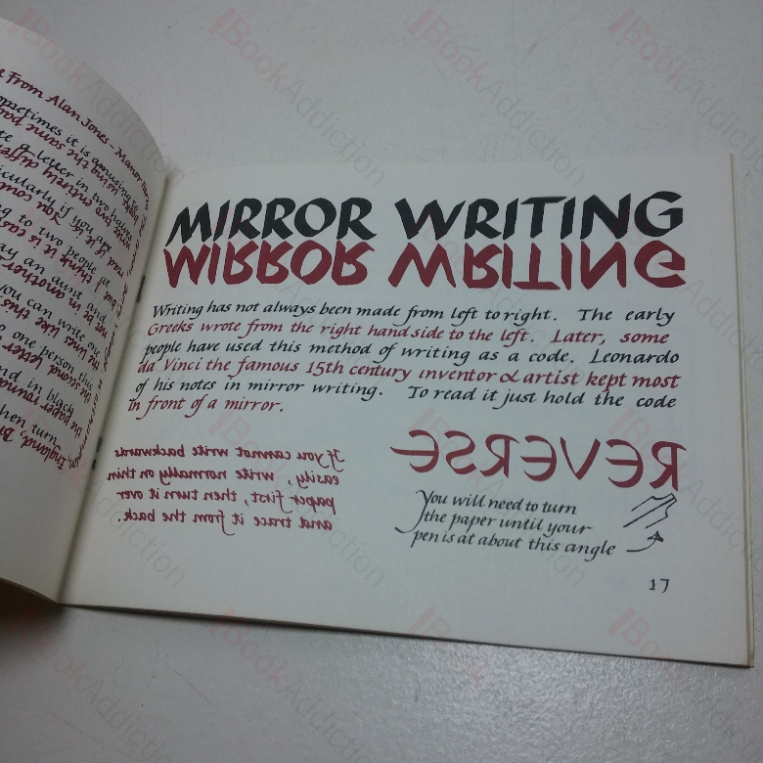 e From Alan Jones - Manor Farm
sometimes it is amusing to
te a letter in two halves
ticularly if you are
ng to two people at
ay an aunt and
you can write one
e one person this
and in black
then turn
England, Br
MIRROR WRITING
MIRROR WRITING
Writing has not always been made from left to right. The early
Greeks wrote from the right hand side to the left. Later, some
people have used this method of writing as a code. Leonardo
da Vinci the famous 15th century inventor & artist kept most
of his notes in mirror writing. To read it just hold the code
in front of a mirror.
If you cannot write backwards
easily, write normally on thin
paper first, then turn it over
and trace it from the back.
REVERSE
You will need to turn
the paper until your
pen is at about this angle
17
BookAddiction